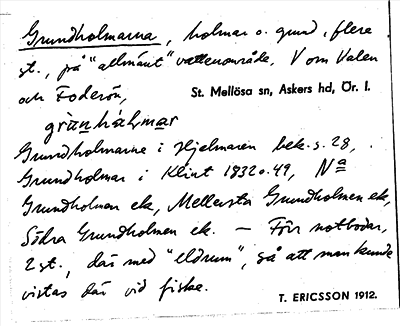 Grundholmarna, holmar o. grund, flere
st., på "allmänt" vattenområde, V om Valen
och Foderön,
St. Mellösa sn, Askers hd, Ör. l.
grùnhålmar
Grundholmarne i Hjelmaren bek. s. 28,
Grundholmar i Klint 1832 o. 49, Nª
Grundholmen ek, Mellersta Grundholmen ek,
Södra Grundholmen ek. — Förr notbodar,
2 st., där med "eldrum", så att man kunde
vistas där vid fiske.
T. ERICSSON 1912.